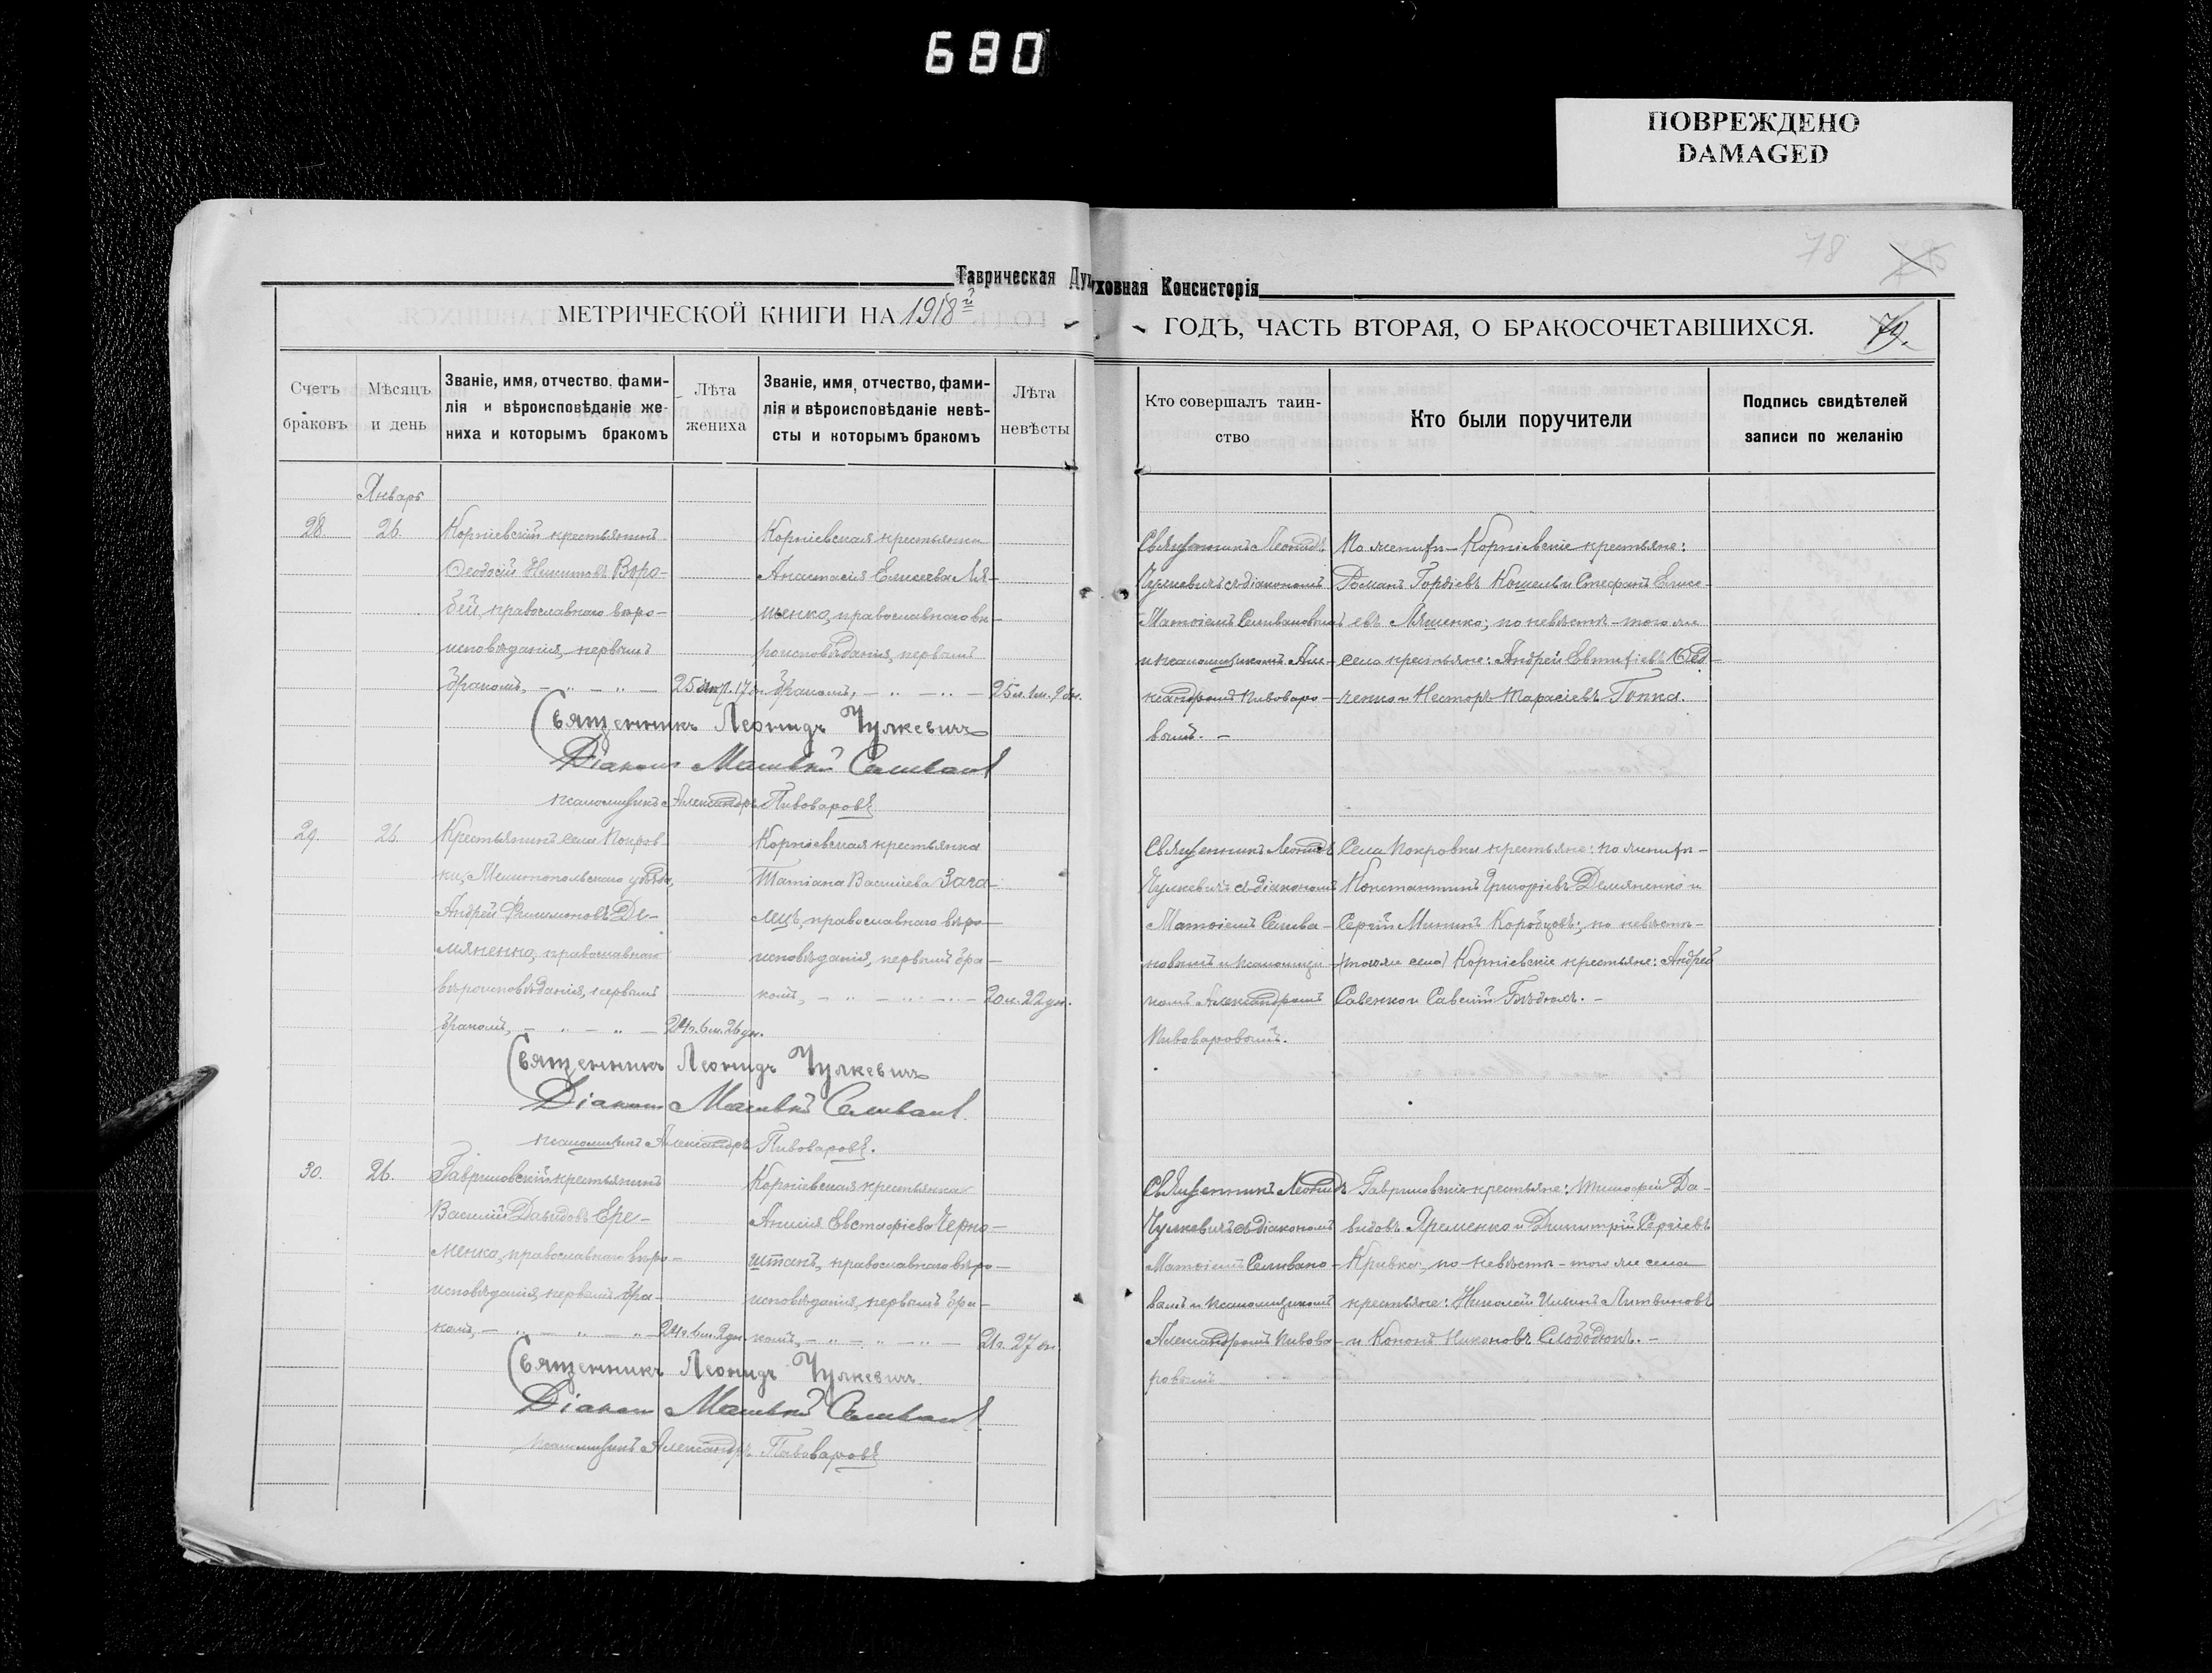 680
ПОВРЕЖДЕНО
DAMAGED
78
Таврическая Духовная Консисторія
МЕТРИЧЕСКОЙ КНИГИ НА 1918й
ГОДЪ, ЧАСТЬ ВТОРАЯ, О БРАКОСОЧЕТАВШИХСЯ.
79.
Счетъ браковъ
Мѣсяцъ и день
Званіе, имя, отчество, фами-
лія и вѣроисповѣданіе же-
ниха и которымъ бракомъ
Лѣта жениха
Званіе, имя, отчество, фами-
лія и вѣроисповѣданіе невѣ-
сты и которымъ бракомъ
Лѣта невѣсты
Кто совершалъ таин-
ство
Кто были поручители
Подпись свидѣтелей
записи по желанію
Январь
28. 26.
Корніевскій крестьянинъ
Ѳеодосій Никитовъ Воро-
бей, православнаго вѣро-
исповѣданія, первымъ
бракомъ, — „ — „ —
Корніевская крестьянка
Анастасія Елисеева Ля-
шенко, православнаго вѣ-
роисповѣданія, первымъ
бракомъ, — „ — „ —
25л. 1м. 9дн.
Священникъ Леонидъ
Чулкевичъ съ діакономъ
Матѳіемъ Селивановымъ
и псаломщикомъ Але-
ксандромъ Пивоваро-
вымъ. —
По женихѣ — Корніевскіе крестьяне:
Романъ Гордіевъ Кошель и Стефанъ Елисе-
евъ Ляшенко; по невѣстѣ - того же
села крестьяне: Андрей Евтихіевъ
и Несторъ Тарасіевъ
Священникъ Леонидъ Чулкевичъ
Діаконъ Матвѣй Селиванов
Псаломщикъ Александръ Пивоваровъ
29. 26.
Крестьянинъ села Покров-
ки, Мелитопольскаго уѣзда,
Андрей Филимоновъ Де-
мяненко, православнаго
вѣроисповѣданія, первымъ
бракомъ, — „ — „ — 24г. 6м. 26дн.
Корніевская крестьянка
Татіана Василіева Зага-
лецъ, православнаго вѣро-
исповѣданія, первымъ бра-
комъ, — „ — „ — 20л. 22дн.
Священникъ Леонидъ
Чулкевичъ съ діакономъ
Матѳіемъ Селива-
новымъ и псаломщи-
комъ Александромъ
Пивоваровымъ.
Села Покровки крестьяне: по женихѣ -
Константинъ Григоріевъ Демяненко и
Сергій Мининъ Коробцовъ; по невѣстѣ -
(того же села) Корніевскіе крестьяне: Андрей
Савенко и Савелій
Священникъ Леонидъ Чулкевичъ
Діаконъ Матвѣй Селиванов
Псаломщикъ Александръ Пивоваровъ.
30. 26.
Гавриловскій крестьянинъ
Василій Давидовъ Ере-
менко, православнаго вѣро-
исповѣданія, первымъ бра-
комъ, — „ — „ — „ — 24г. 1м. 2дн.
Корніевская крестьянка
Анисія Евстафіева Черно-
штанъ, православнаго вѣро-
исповѣданія, первымъ бра-
комъ, — „ — „ — „ — 21г. 27дн.
Священникъ Леонидъ
Чулкевичъ съ діакономъ
Матѳіемъ Селивано-
вымъ и псаломщикомъ
Александромъ Пивова-
ровымъ
Гавриловскіе крестьяне: Тимофей Да-
видовъ Яременко и Димитрій Сергіевъ
Кривко; по невѣстѣ - того же села
крестьяне: Николай Ильинъ Литвиновъ
и Кононъ Никоновъ Слободюкъ. —
Священникъ Леонидъ Чулкевичъ
Діаконъ Матвѣй Селиванов
Псаломщикъ Александръ Пивоваровъ